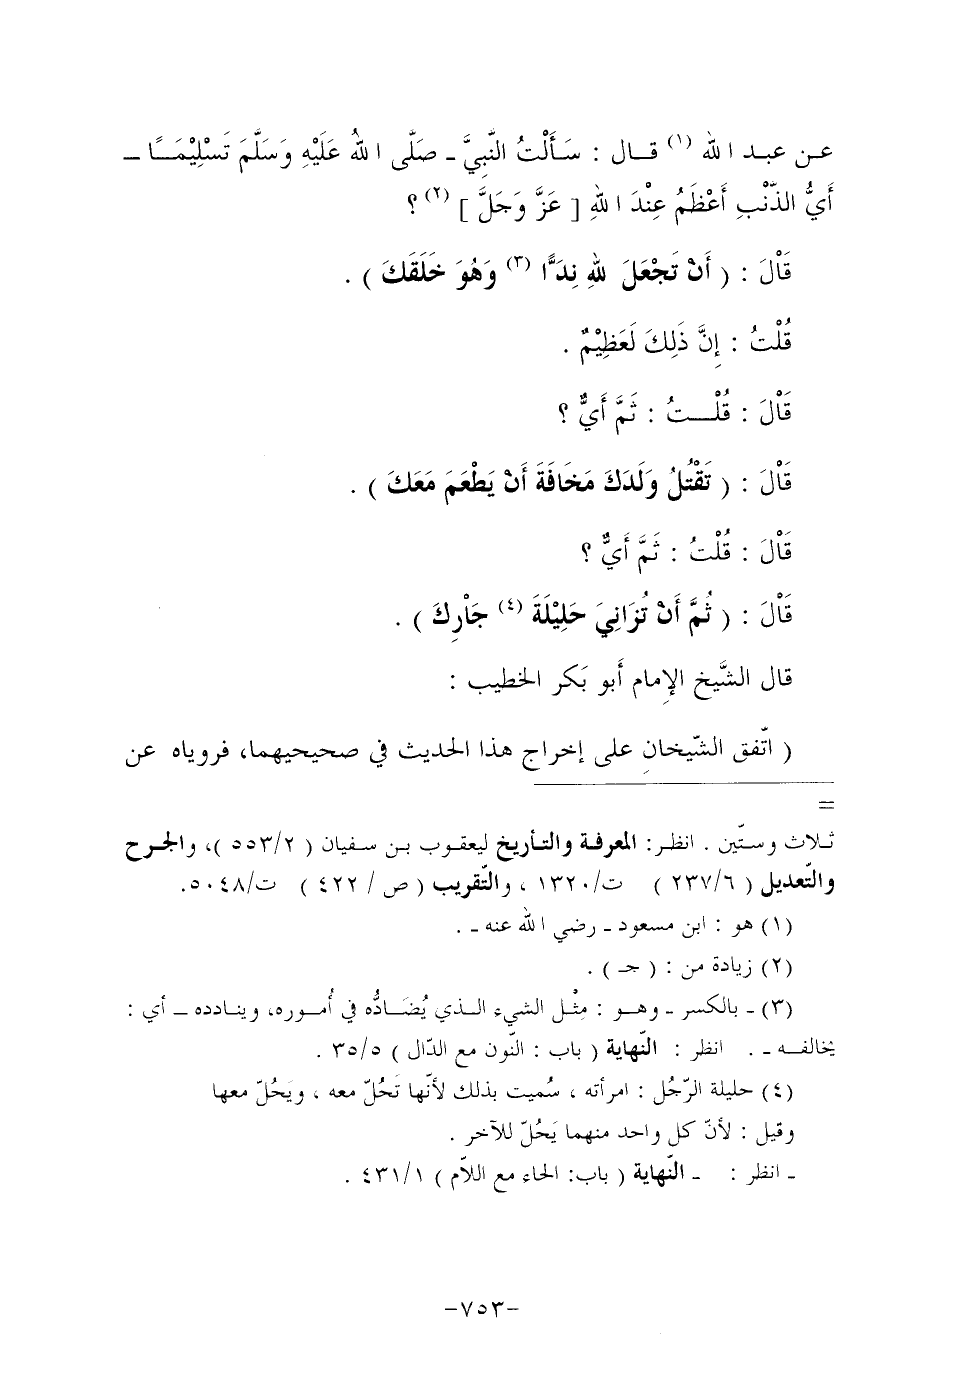 عن عبد الله (١) قال : سَأَلْتُ النَّبِيَّ ـ صَلَّى اللهُ عَلَيْهِ وَسَلَّمَ تَسْلِيْمَـــًا ــ
أَيُّ الذَّنْبِ أَعْظَمُ عِنْدَ اللهِ [ عَزَّ وَجَلَّ ] (٢) ؟
قَاْلَ : ( أَنْ تَجْعَلَ للهِ نِدَّاً (٣) وَهُوَ خَلَقَكَ ) .
قُلْتُ : إِنَّ ذَلِكَ لَعَظِيْمٌ .
قَاْلَ : قُلْــتُ : ثَمَّ أَيٌّ ؟
قَاْلَ : ( تَقْتُلُ وَلَدَكَ مَخَافَةَ أَنْ يَطْعَمَ مَعَكَ ) .
قَاْلَ : قُلْتُ : ثَمَّ أَيٌّ ؟
قَاْلَ : ( ثُمَّ أَنْ تُزَانِيَ حَلِيْلَةَ (٤) جَاْرِكَ ) .
قال الشَّيخ الإِمام أَبو بَكر الخطيب :
( اتّفق الشّيخانِ على إخراج هذا الحديث في صحيحيهما، فروياه عن
=
ثلاث وستّين . انظر: المعرفة والتأريخ ليعقوب بن سفيان ( ٥٥٣/٢ )، والجرح
والتّعديل ( ٢٣٧/٦ ) ت/١٣٢٠ ، والتّقريب ( ص / ٤٢٢ ) ت/٥٠٤٨.
(١) هو : ابن مسعود ـ رضي الله عنه ـ .
(٢) زيادة من : ( جـ ) .
(٣) ـ بالكسر ـ وهــو : مِثْـل الشيء الـذي يُضَــادُّه في أُموره، وينـادده ــ أي :
يخالفـه ـ . انظر : النّهاية ( باب : النّون مع الدّال ) ٣٥/٥ .
(٤) حليلة الرّجُل : امرأته ، سُميت بذلك لأنّها تَحُلّ معه ، ويَحُلّ معها
وقيل : لأنّ كل واحد منهما يَحُلّ للآخر .
ـ انظر : ـ النّهاية ( باب: الحاء مع اللاّم ) ٤٣١/١ .
-٧٥٣-